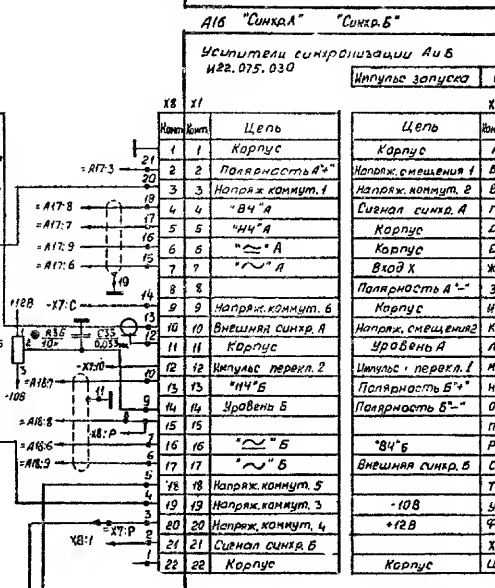 А16 "Синхр.А" "Синхр.Б"
Усилители синхронизации А и Б
И22.075.030
Импульс запуска
X8 X1
Конт Конт Цепь
1 1 Корпус
2 2 Полярность А"+"
3 3 Напряж коммут. 1
4 4 "ВЧ" А
5 5 "НЧ" А
6 6 "≃" А
7 7 "~" А
8 8
9 9 Напряж. коммут. 6
10 10 Внешняя синхр. А
11 11 Корпус
12 12 Импульс перекл. 2
13 13 "НЧ" Б
14 14 Уровень Б
15 15
16 16 "≃" Б
17 17 "~" Б
18 18 Напряж. коммут. 5
19 19 Напряж. коммут. 3
20 20 Напряж. коммут. 4
21 21 Сигнал синхр. Б
22 22 Корпус
Цепь
Корпус
Напряж. смещения 1
Напряж. коммут. 2
Сигнал синхр. А
Корпус
Корпус
Вход X
Полярность А"-"
Корпус
Напряж. смещения 2
Уровень А
Импульс перекл. 1
Полярность Б"+"
Полярность Б"-"
"ВЧ" Б
Внешняя синхр. Б
-10В
+12В
Корпус
21
=А17:3
20
18
=А17:8
17
=А17:7
16
=А17:9
15
=А17:6
19
14
-X7:С
+12В
13
R36
10к
C33
0,033
12
1
2
3
-X7:10
10
=А18:7
11
-10В
9
8
=А18:8
X8:Р
7
=А18:6
6
=А18:9
5
4
3
=X7:Р
2
X8:1
1